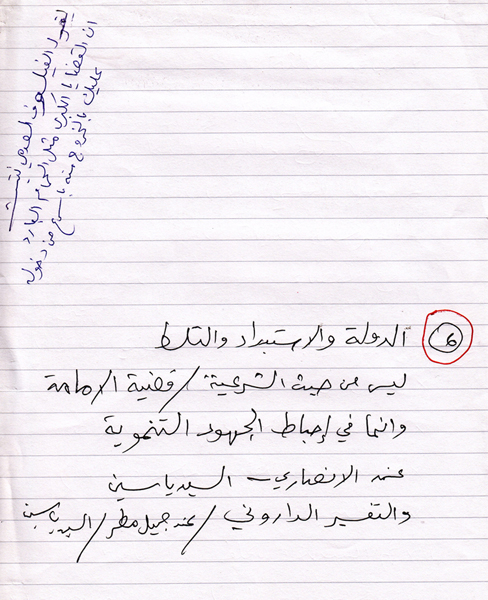 يقول الفيلسوف العدمي نيتشه
ان القضايا الكبرى مثل الحمام البارد
عليك بالخروج منه باسرع من دخوله
٦ الدولة والاستبداد والتسلط
ليس من حيث الشرعية / قضية الإمامة
وانما في إحباط الجهود التنموية
عند الانصاري - السيد ياسين
والتفسير الداروني / عند جميل مطر / السيد ياسين